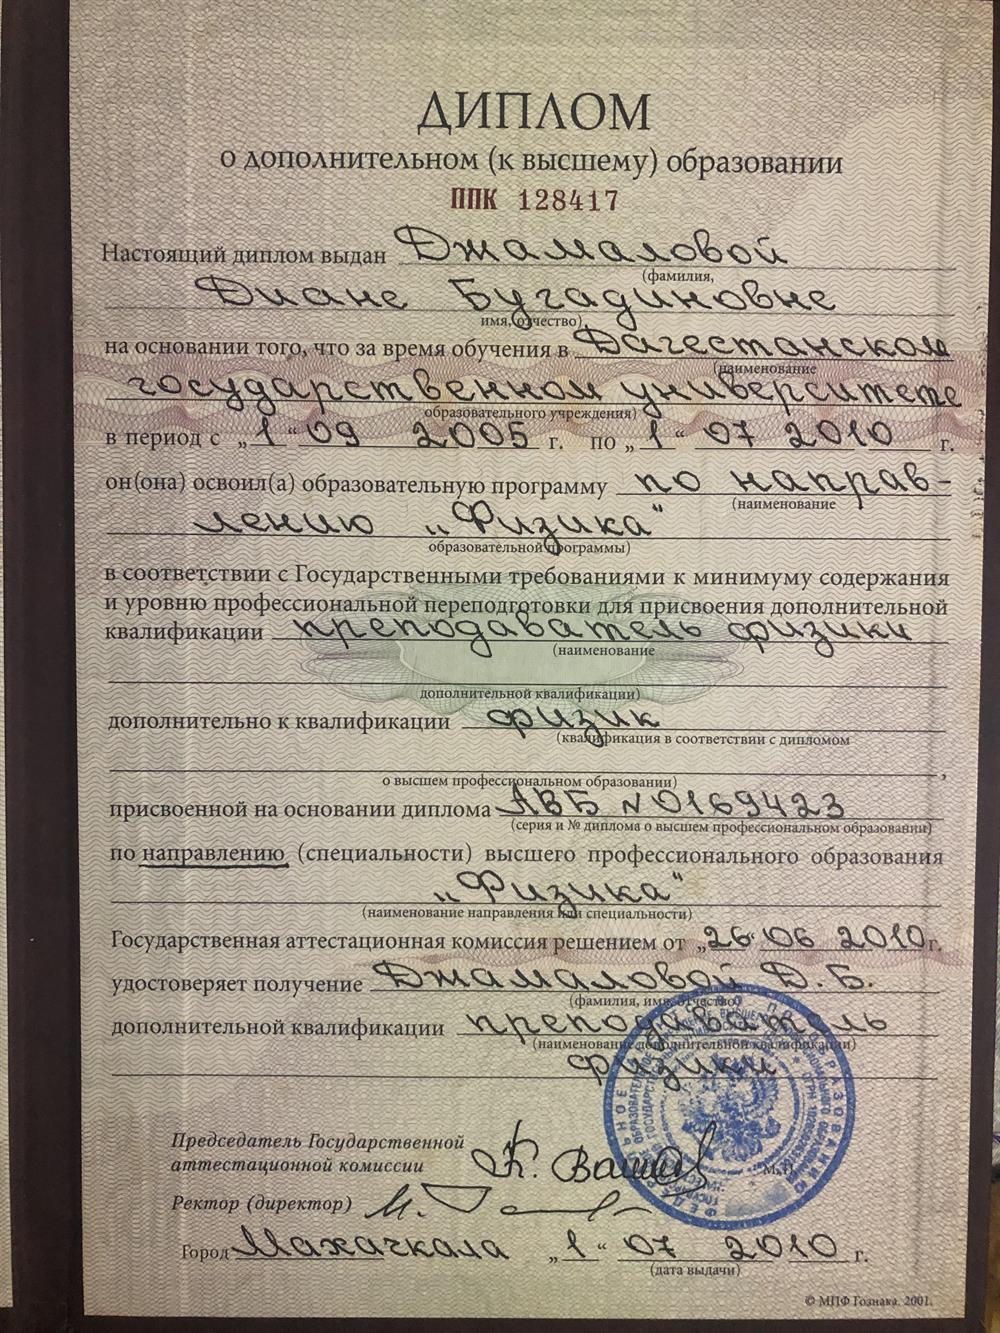 ДИПЛОМ
о дополнительном (к высшему) образовании
ППК 128417
Настоящий диплом выдан Джамаловой
(фамилия,
Диане Бугадиновне
имя, отчество)
на основании того, что за время обучения в Дагестанском
(наименование
государственном университете
образовательного учреждения)
в период с „1“ 09 2005 г. по „1“ 07 2010 г.
он(она) освоил(а) образовательную программу по направ-
(наименование
лению „Физика“
образовательной программы)
в соответствии с Государственными требованиями к минимуму содержания
и уровню профессиональной переподготовки для присвоения дополнительной
квалификации преподаватель физики
(наименование
дополнительной квалификации)
дополнительно к квалификации физик
(квалификация в соответствии с дипломом
о высшем профессиональном образовании)
присвоенной на основании диплома АВБ №0169423
(серия и № диплома о высшем профессиональном образовании)
по направлению (специальности) высшего профессионального образования
„Физика“
(наименование направления или специальности)
Государственная аттестационная комиссия решением от „26“ 06 2010 г.
удостоверяет получение Джамаловой Д. Б.
(фамилия, имя, отчество)
дополнительной квалификации преподаватель
(наименование дополнительной квалификации)
физики
Председатель Государственной
аттестационной комиссии
М.П.
Ректор (директор)
Город Махачкала „1“ 07 2010 г.
(дата выдачи)
© МПФ Гознака. 2001.